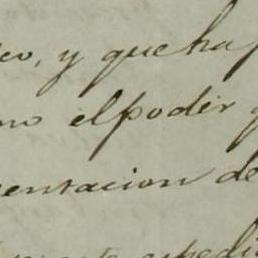 co, y que ha
mo el poder
sentacion de